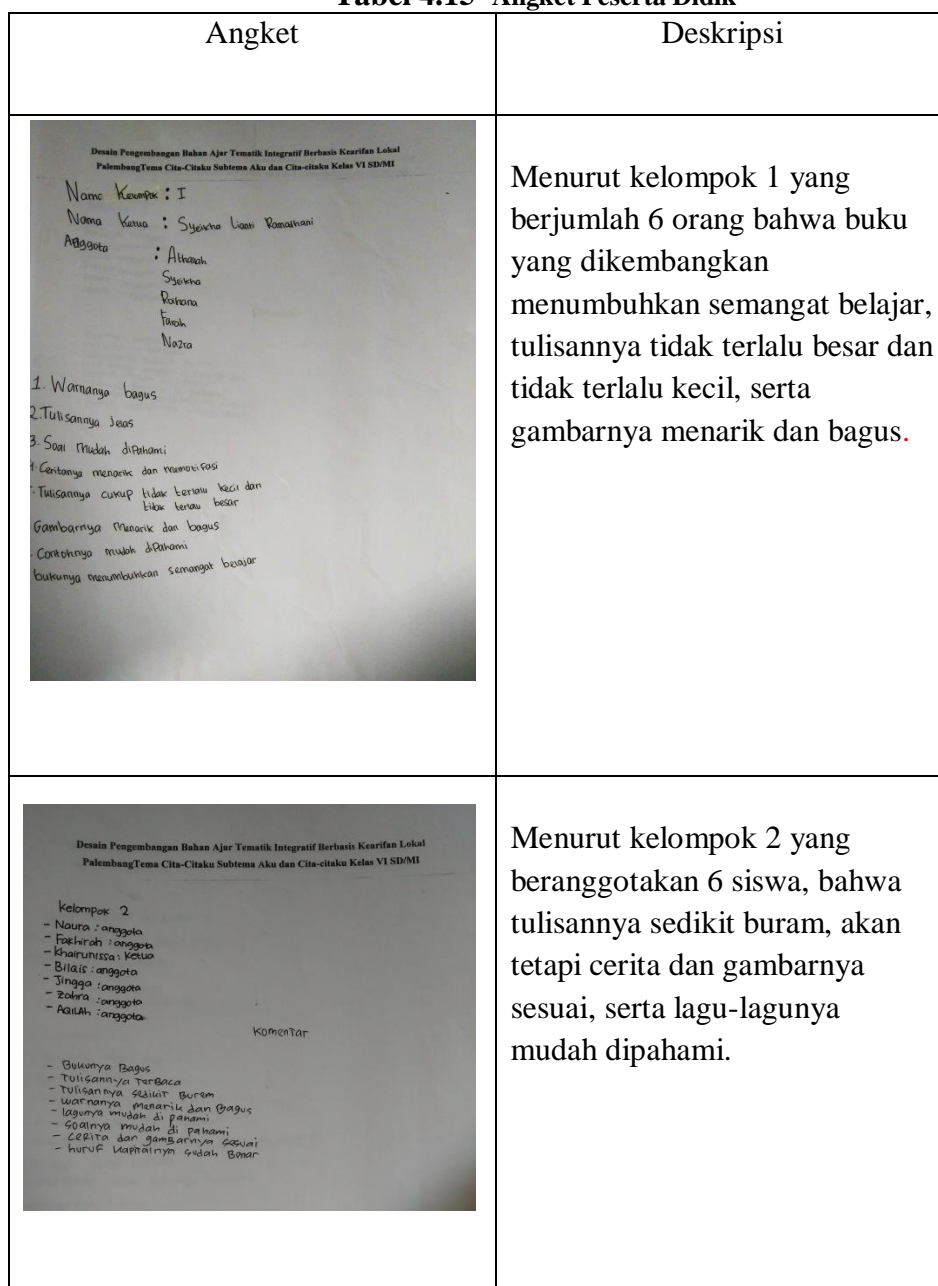 Tabel 4.15 Angket Peserta Didik
Angket
Deskripsi
Desain Pengembangan Bahan Ajar Tematik Integratif Berbasis Kearifan Lokal
PalembangTema Cita-Citaku Subtema Aku dan Cita-citaku Kelas VI SD/MI
Nama : I
Nama Ketua : Lianti Ramadhani
Anggota : Atharah
Raihana
Farah
Nazra
1. Warnanya bagus
2. Tulisannya Jelas
3. Soal Mudah diPahami
Ceritanya menarik dan memotifasi
Tulisannya cukup tidak terlalu kecil dan
tidak terlalu besar
Gambarnya Menarik dan bagus
Contohnya mudah diPahami
bukunya menumbuhkan semangat belajar
Menurut kelompok 1 yang
berjumlah 6 orang bahwa buku
yang dikembangkan
menumbuhkan semangat belajar,
tulisannya tidak terlalu besar dan
tidak terlalu kecil, serta
gambarnya menarik dan bagus.
Desain Pengembangan Bahan Ajar Tematik Integratif Berbasis Kearifan Lokal
PalembangTema Cita-Citaku Subtema Aku dan Cita-citaku Kelas VI SD/MI
Kelompok 2
- Naura : anggota
- Fakhirah : anggota
- Khairunissa : Ketua
- Bilqis : anggota
- Jingga : anggota
- Zahra : anggota
- AQILAh : anggota
Komentar
- Bukunya Bagus
- Tulisannya TerBaca
- Tulisannya sedikit Burem
- warnanya menarik dan Bagus
- lagunya mudah di pahami
- Soalnya mudah di pahami
- cerita dan gambarnya sesuai
- huruf kapitalnya sudah Benar
Menurut kelompok 2 yang
beranggotakan 6 siswa, bahwa
tulisannya sedikit buram, akan
tetapi cerita dan gambarnya
sesuai, serta lagu-lagunya
mudah dipahami.